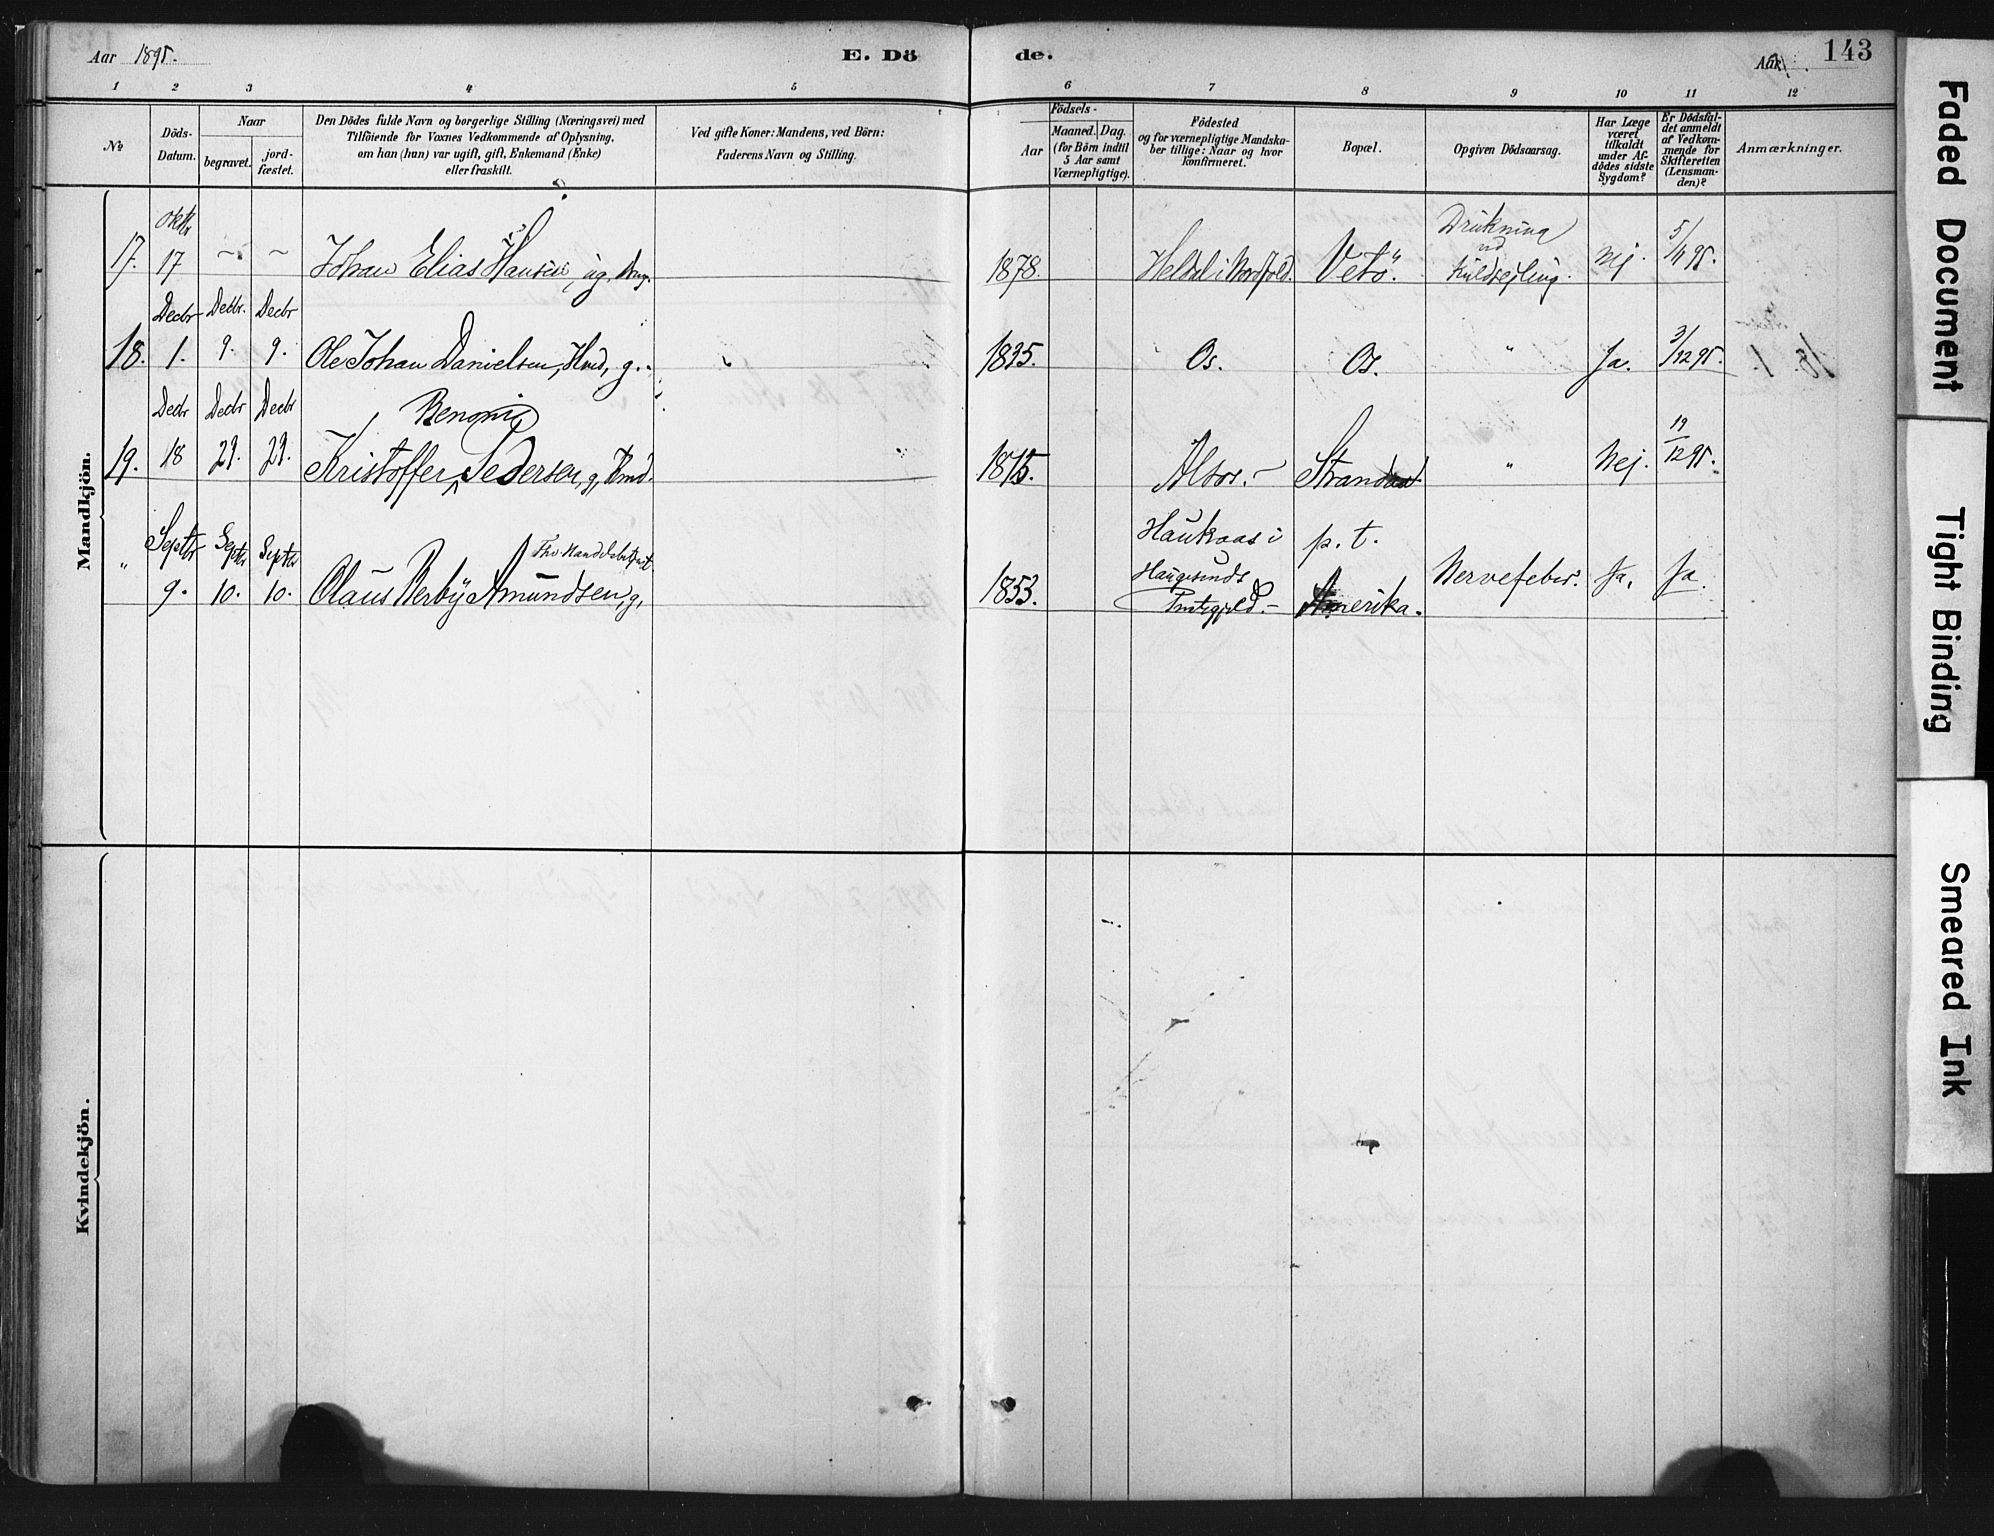 Aar 1895.
E. Dö
de.
Aar
143
1 2 3 4 5 6 7 8 9 10 11 12
No
Döds-
Datum.
Naar
begravet.
jord-
fæstet.
Den Dödes fulde Navn og borgerlige Stilling (Næringsvei) med
Tilföiende for Voxnes Vedkommende af Oplysning.
om han (hun) var ugift, gift, Enkemand (Enke)
eller fraskilt.
Ved gifte Koner: Mandens, ved Börn:
Faderens Navn og Stilling.
Födsels-
Aar
Maaned. Dag.
(for Börn indtil
5 Aar samt
Værnepligtige).
Födested
og for værnepligtige Mandska-
ber tillige: Naar og hvor
konfirmeret.
Bopæl.
Opgiven Dödsaarsag.
Har Læge
været
tilkaldt
under Af-
dödes sidste
Sygdom?
Er Dödsfal-
det anmeldt
af Vedkom-
mende for
Skifteretten
(Lensman-
den)?
Anmærkninger.
Mandkjön.
17. Oktbr 17 – – Johan Elias Hansen, ug. 1878. Heldal i Nordfold. Vetö. Drukning ved Kuldsejling. Nej. 5/11 95.
18. Decbr 1. Decbr. 9. Decbr 9. Ole Johan Danielsen, Kmd, g. " 1835. Os. Os. " Ja. 3/12 95.
19. Decbr 18 Decbr 29. Decbr 29. Kristoffer Benoni Pedersen, g, Kmd. 1815. Alsos. – Strand " Nej. 19/12 95.
" Septbr 9. Septbr 10. Septbr 10. Olaus Berby Amundsen, g, 1853. Haukaas i Haugesunds Prstgjeld. – p. t. Amerika. Nervefeber. Ja. Ja.
Kvindekjön.
Faded Document
Tight Binding
Smeared Ink